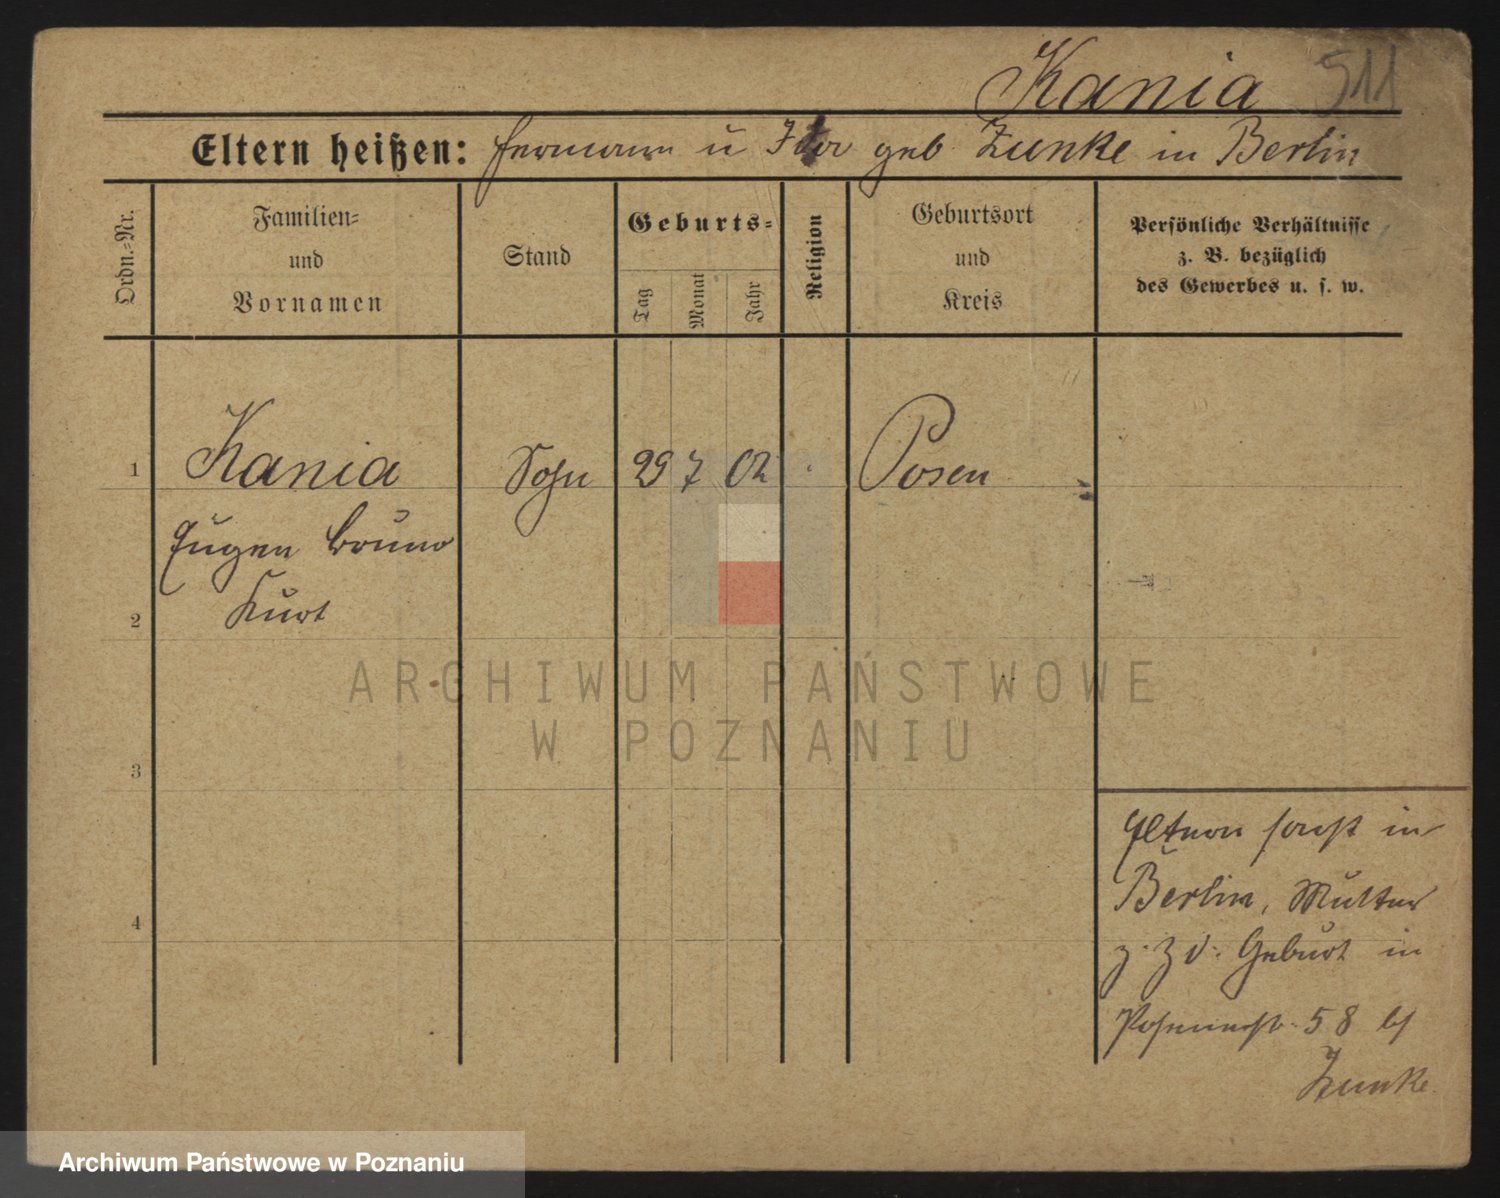 Kania 511
Eltern heißen: Hermann u Ida geb Zunke in Berlin
Ordn.=Nr.
Familien=
und
Vornamen
Stand
Geburts=
Tag
Monat
Jahr
Religion
Geburtsort
und
Kreis
Persönliche Verhältnisse
z. B. bezüglich
des Gewerbes u. s. w.
1 Kania Sohn 29 7 02 Posen
Eugen Bruno
2 Kurt
3
4
Eltern sonst in
Berlin, Mutter
z. Z d. Geburt in
58 bei
Zunke
ARCHIWUM PAŃSTWOWE
W POZNANIU
Archiwum Państwowe w Poznaniu